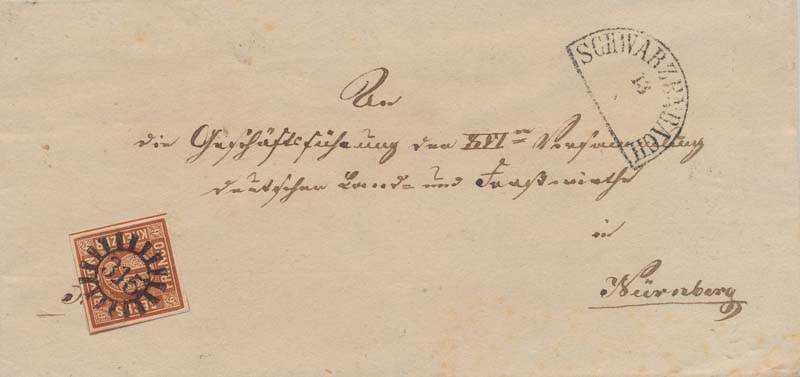 SCHWARZBARACH
13
An
die Geschäftsführung der XVI ten Versammlung
deutscher Land- und Forstwirthe
in
Nürnberg
BAYERN
KREUZER
FRANCO
SECHS